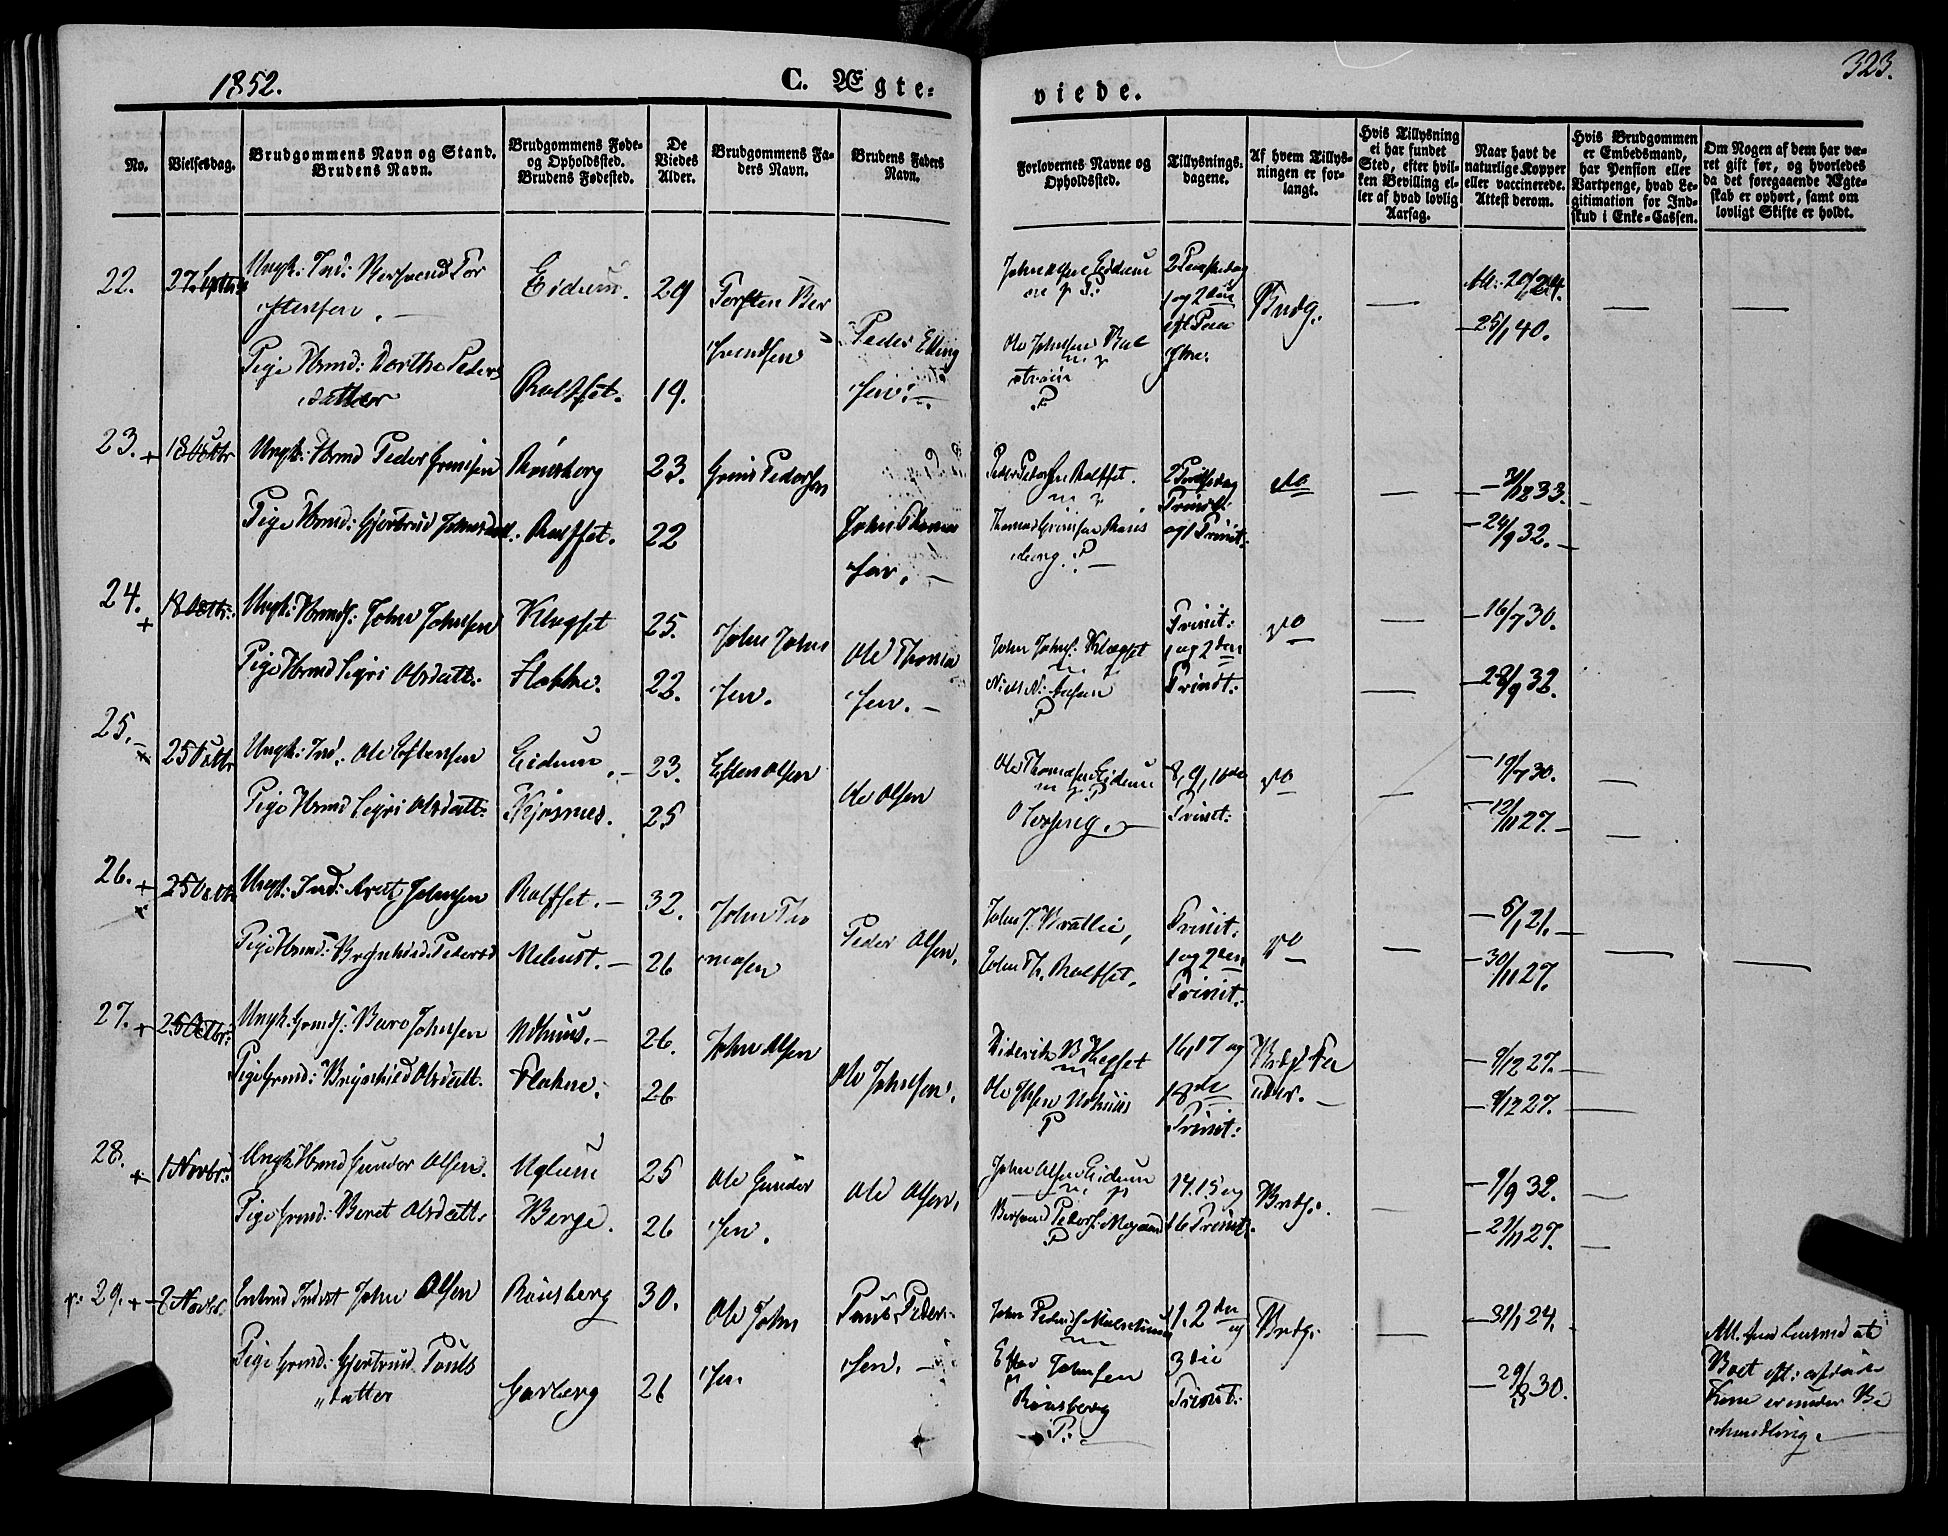 1852.
C. Ægte-
viede.
323.
No.
Vielsesdag.
Brudgommens Navn og Stand.
Brudens Navn.
Brudgommens Føde-
og Opholdssted.
Brudens Fødested.
De
Viedes
Alder.
Brudgommens Fa-
ders Navn.
Brudens Faders
Navn.
Forlovernes Navne og
Opholdssted.
Tillysnings-
dagene.
Af hvem Tillys-
ningen er for-
langt.
Hvis Tillysning
ei har fundet
Sted, efter hvil-
ken Bevilling el-
ler af hvad lovlig
Aarsag.
Naar havt de
naturlige Kopper
eller vaccinerede.
Attest derom.
Hvis Brudgommen
er Embedsmand,
har Pension eller
Vartpenge, hvad Le-
gitimation for Ind-
skud i Enke-Cassen.
Om Nogen af dem har væ-
ret gift før, og hvorledes
da det foregaaende Ægte-
skab er ophørt, samt om
lovligt Skifte er holdt.
22.
Ungk: Ind: Bersvend Tor
stensen.
Pige Hrmd: Dorthe Peders
datter
Eidum.
Rolfset.
29
19.
Torsten Ber
svendsen
Peder Elling
sen.
Ole Johnsen
Brdg.
25/1 40.
23. +
18 Octbr
Ungk: Hrmd Peder Grimsen
Pige Hrmd: Gjertrud Johnsdatt.
Rønsberg
Rolfset.
23.
22
Grim Pedersen
John Thomas
sen.
Peder Pedersen Rolfset.
Thomas Grimsen Røns
berg. P.
og 1 Trinit:
do
33.
24/9 32.
24. +
18 Octbr:
Ungk: Hrmds: John Johnsen
Pige Hrmd Sigri Olsdatt:
Klegset
Flakne.
25.
22.
John Johns
sen.
Ole Thomas
sen.
John Johns: Klegset
P
Trinit:
1 og 2den
Trinit:
do
16/7 30.
28/9 32.
25. +
25 Octbr
Ungk: Ind: Ole Estensen
Pige Hrmd Sigri Olsdatt:
Eidum.
Kjøsnes.
23.
25
Esten Olsen
Ole Olsen
Ole Thomasen Eidum
8, 9, 10de
Trinit:
do
19/7 30.
12/11 27.
26. +
25 Octbr
Ungk: Ind: Arnt Johnsen
Pige Hrmd: Brynhild Pedersd
Rolfset.
Mebust.
32.
26
John Tho
masen
Peder Olsen.
John J. Brattli,
John Th. Rolfset.
Trinit:
1 og 2den
Trinit:
do
5/1 21.
30/11 27.
27. +
25 Octbr:
Ungk: Grmds: Baro Johnsen
Pige Grmd: Brynhild Olsdatt.
Udhuus.
Flakne.
26.
26
John Olsen
Ole Johnsen.
Diderik B Hegset
Ole Olsen Udhuus
P
16, 17 og
18de
Trinit:
Brdg Fa
der.
9/12 27.
9/12 27.
28. +
1 Novbr:
Ungk: Hrmd Gunder Olsen.
Pige Grmd: Beret Olsdatt.
Uglum
Berge.
25
26
Ole Gunder
sen.
Ole Olsen.
John Olsen Eidum
Bersvend Peders:
P
14. 15 og
16 Trinit.
Brdg.
1/9 32.
21/11 27.
29. +
Novbr.
Enkmd Inderst John Olsen
Pige Grmd: Gjertrud Pouls
datter
Rønsberg
Garberg
30.
26
Ole John
sen.
Poul Peder
sen.
Johnsen
Rønsberg
P.
1. 2den
og
3die
Trinit:
Brdg.
31/1 24.
30.
Att. fra Lensmd at
Boet eft: afdøde
Kone er under Be
handling.